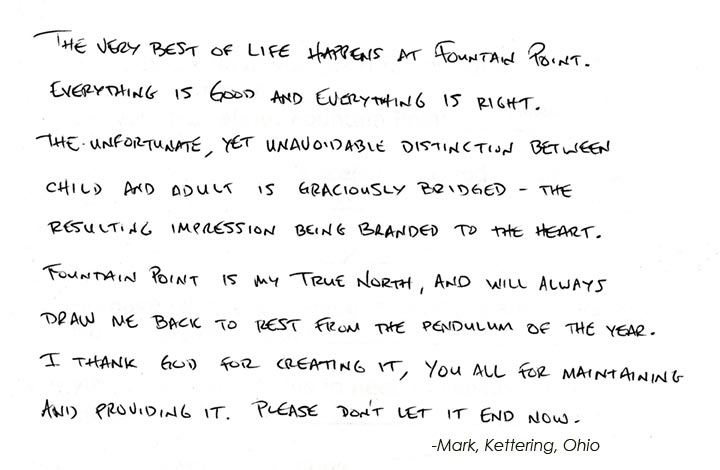 The very best of life happens at Fountain Point.
Everything is Good and everything is right.
The unfortunate, yet unavoidable distinction between
child and adult is graciously bridged - the
resulting impression being branded to the heart.
Fountain Point is my True North, and will always
draw me back to rest from the pendulum of the year.
I thank God for creating it, you all for maintaining
and providing it. Please don't let it end now.
-Mark, Kettering, Ohio